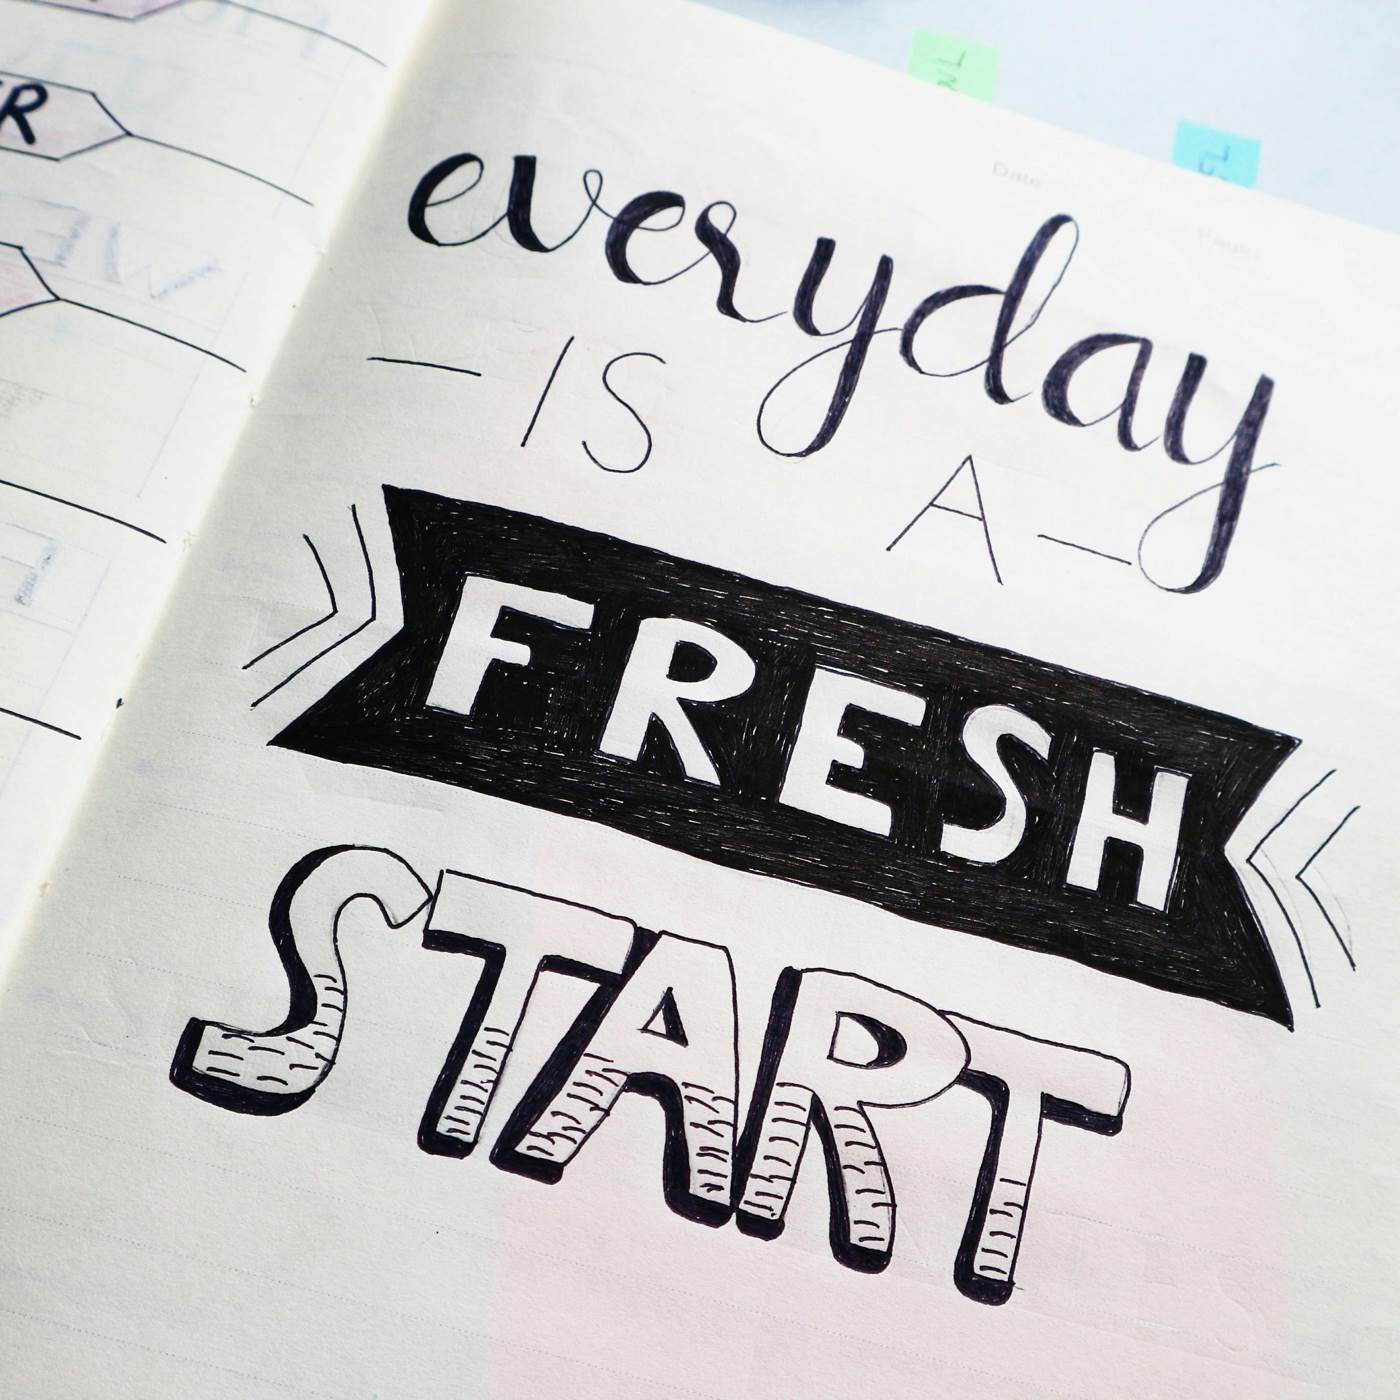 everyday
— IS A —
FRESH
START
Date
R